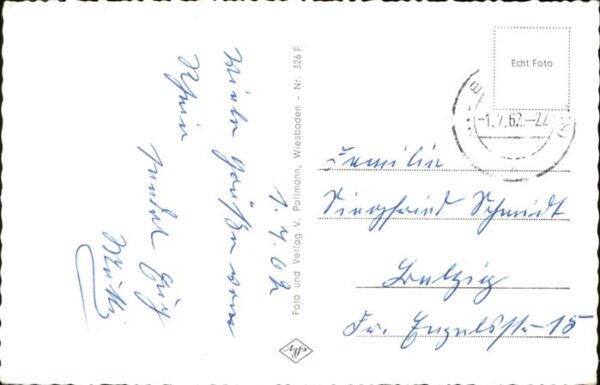 Viele Grüße vom
Rhein
sendet Euch
Mutti
1.7.62
Foto und Verlag V. Pollmann, Wiesbaden - Nr. 326 F
Echt Foto
-1.7.62.-22
Familie
Siegfried Schmidt
Belzig
Fr. Engelsstr-15